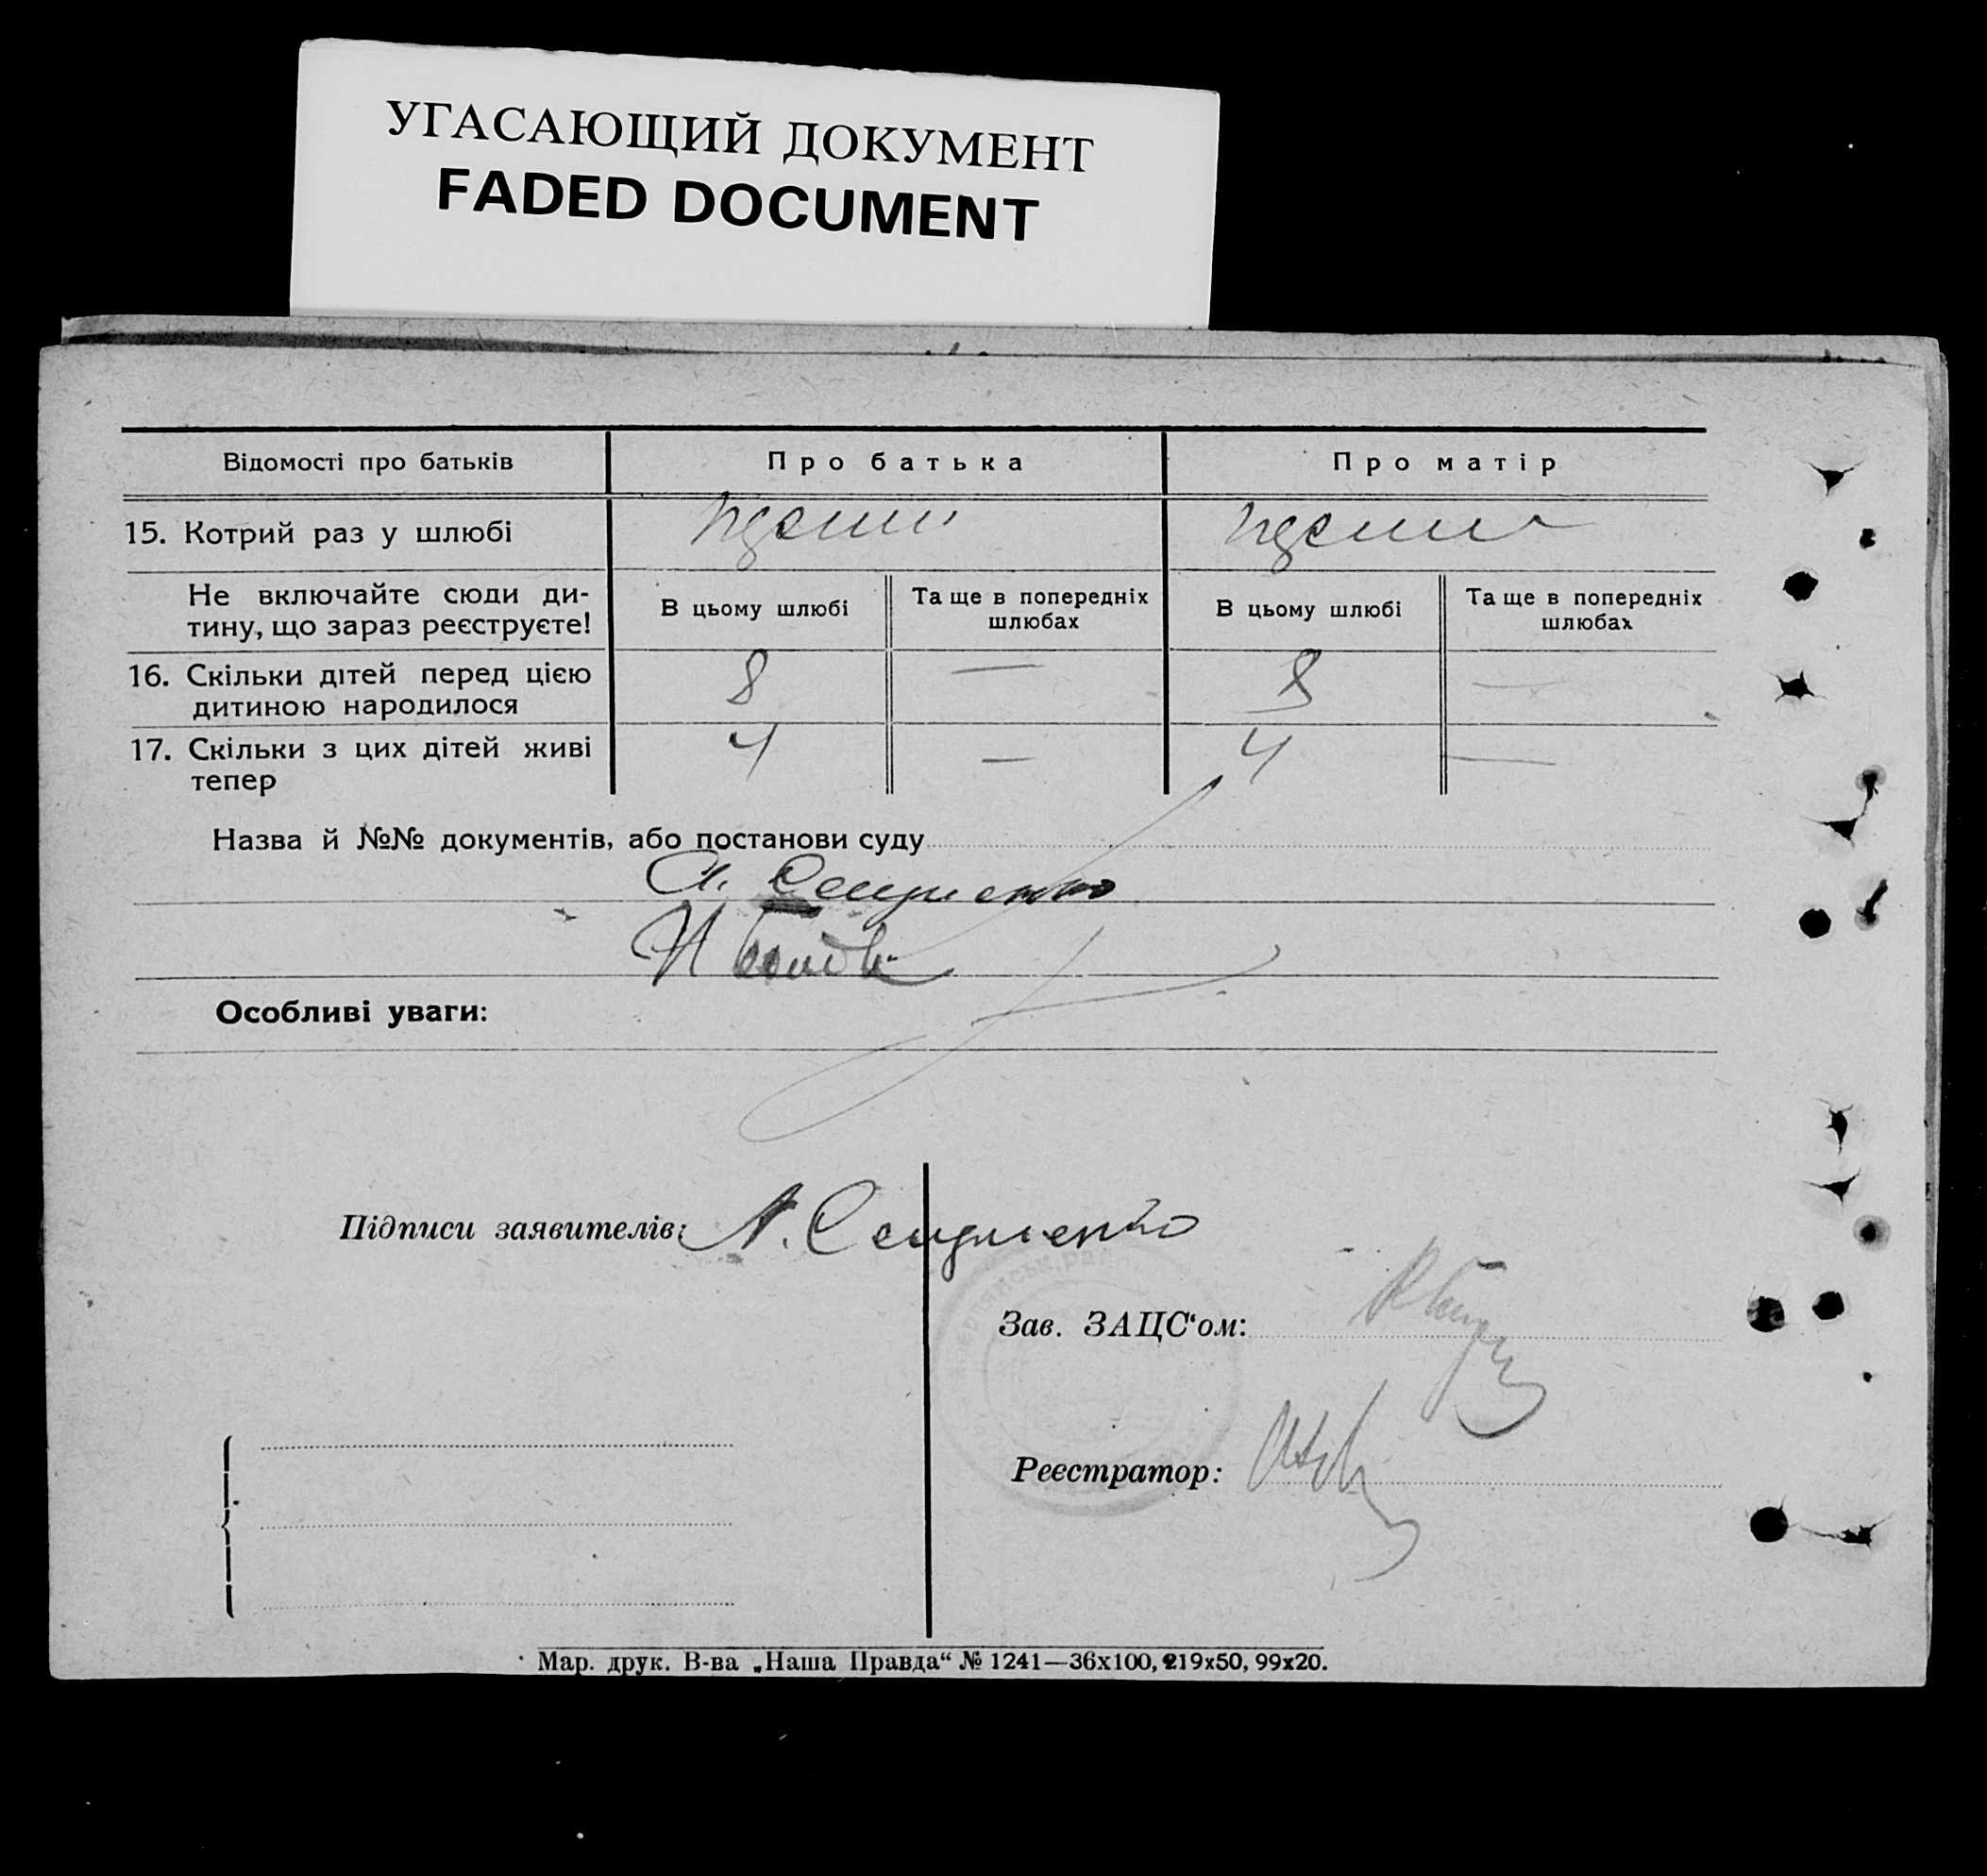 УГАСАЮЩИЙ ДОКУМЕНТ
FADED DOCUMENT
Відомості про батьків
Про батька
Про матір
15. Котрий раз у шлюбі
Не включайте сюди ди-
тину, що зараз реєструєте!
В цьому шлюбі
Та ще в попередніх
шлюбах
В цьому шлюбі
Та ще в попередніх
шлюбах
16. Скільки дітей перед цією
дитиною народилося
8
—
8
—
17. Скільки з цих дітей живі
тепер
4
—
4
—
Назва й №№ документів, або постанови суду
Особливі уваги:
Підписи заявителів:
Зав. ЗАЦС‘ом:
Реєстратор:
Мар. друк. В-ва „Наша Правда“ № 1241—36х100, 219х50, 99х20.